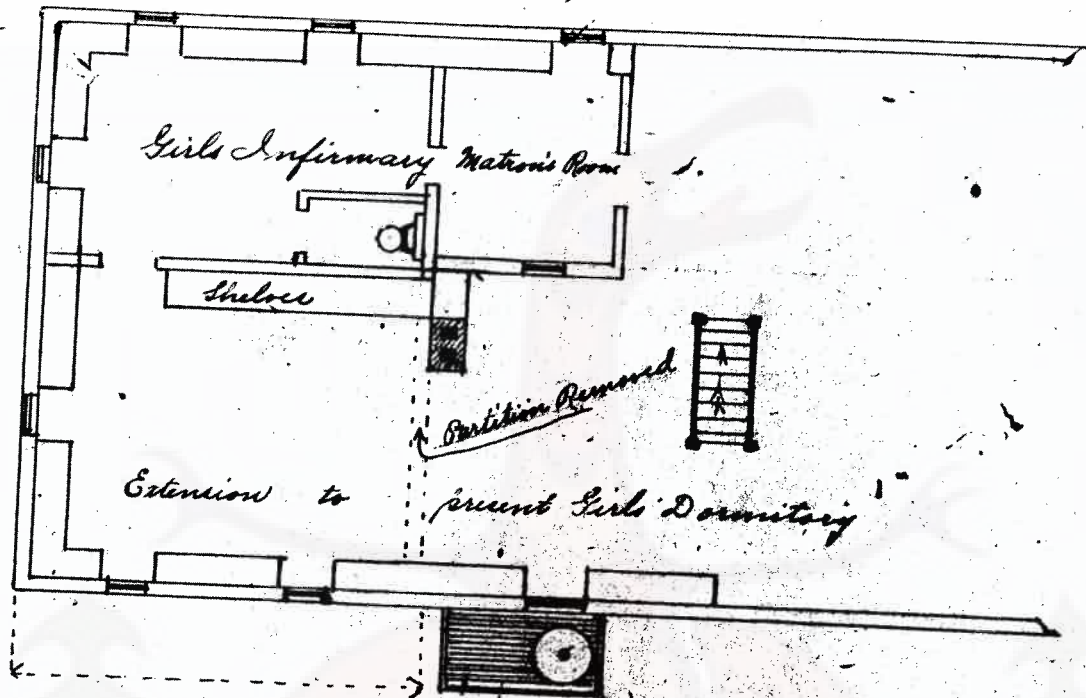 Girls Infirmary Matron's Room
Shelves
Partition Removed
Extension to present Girls' Dormitory